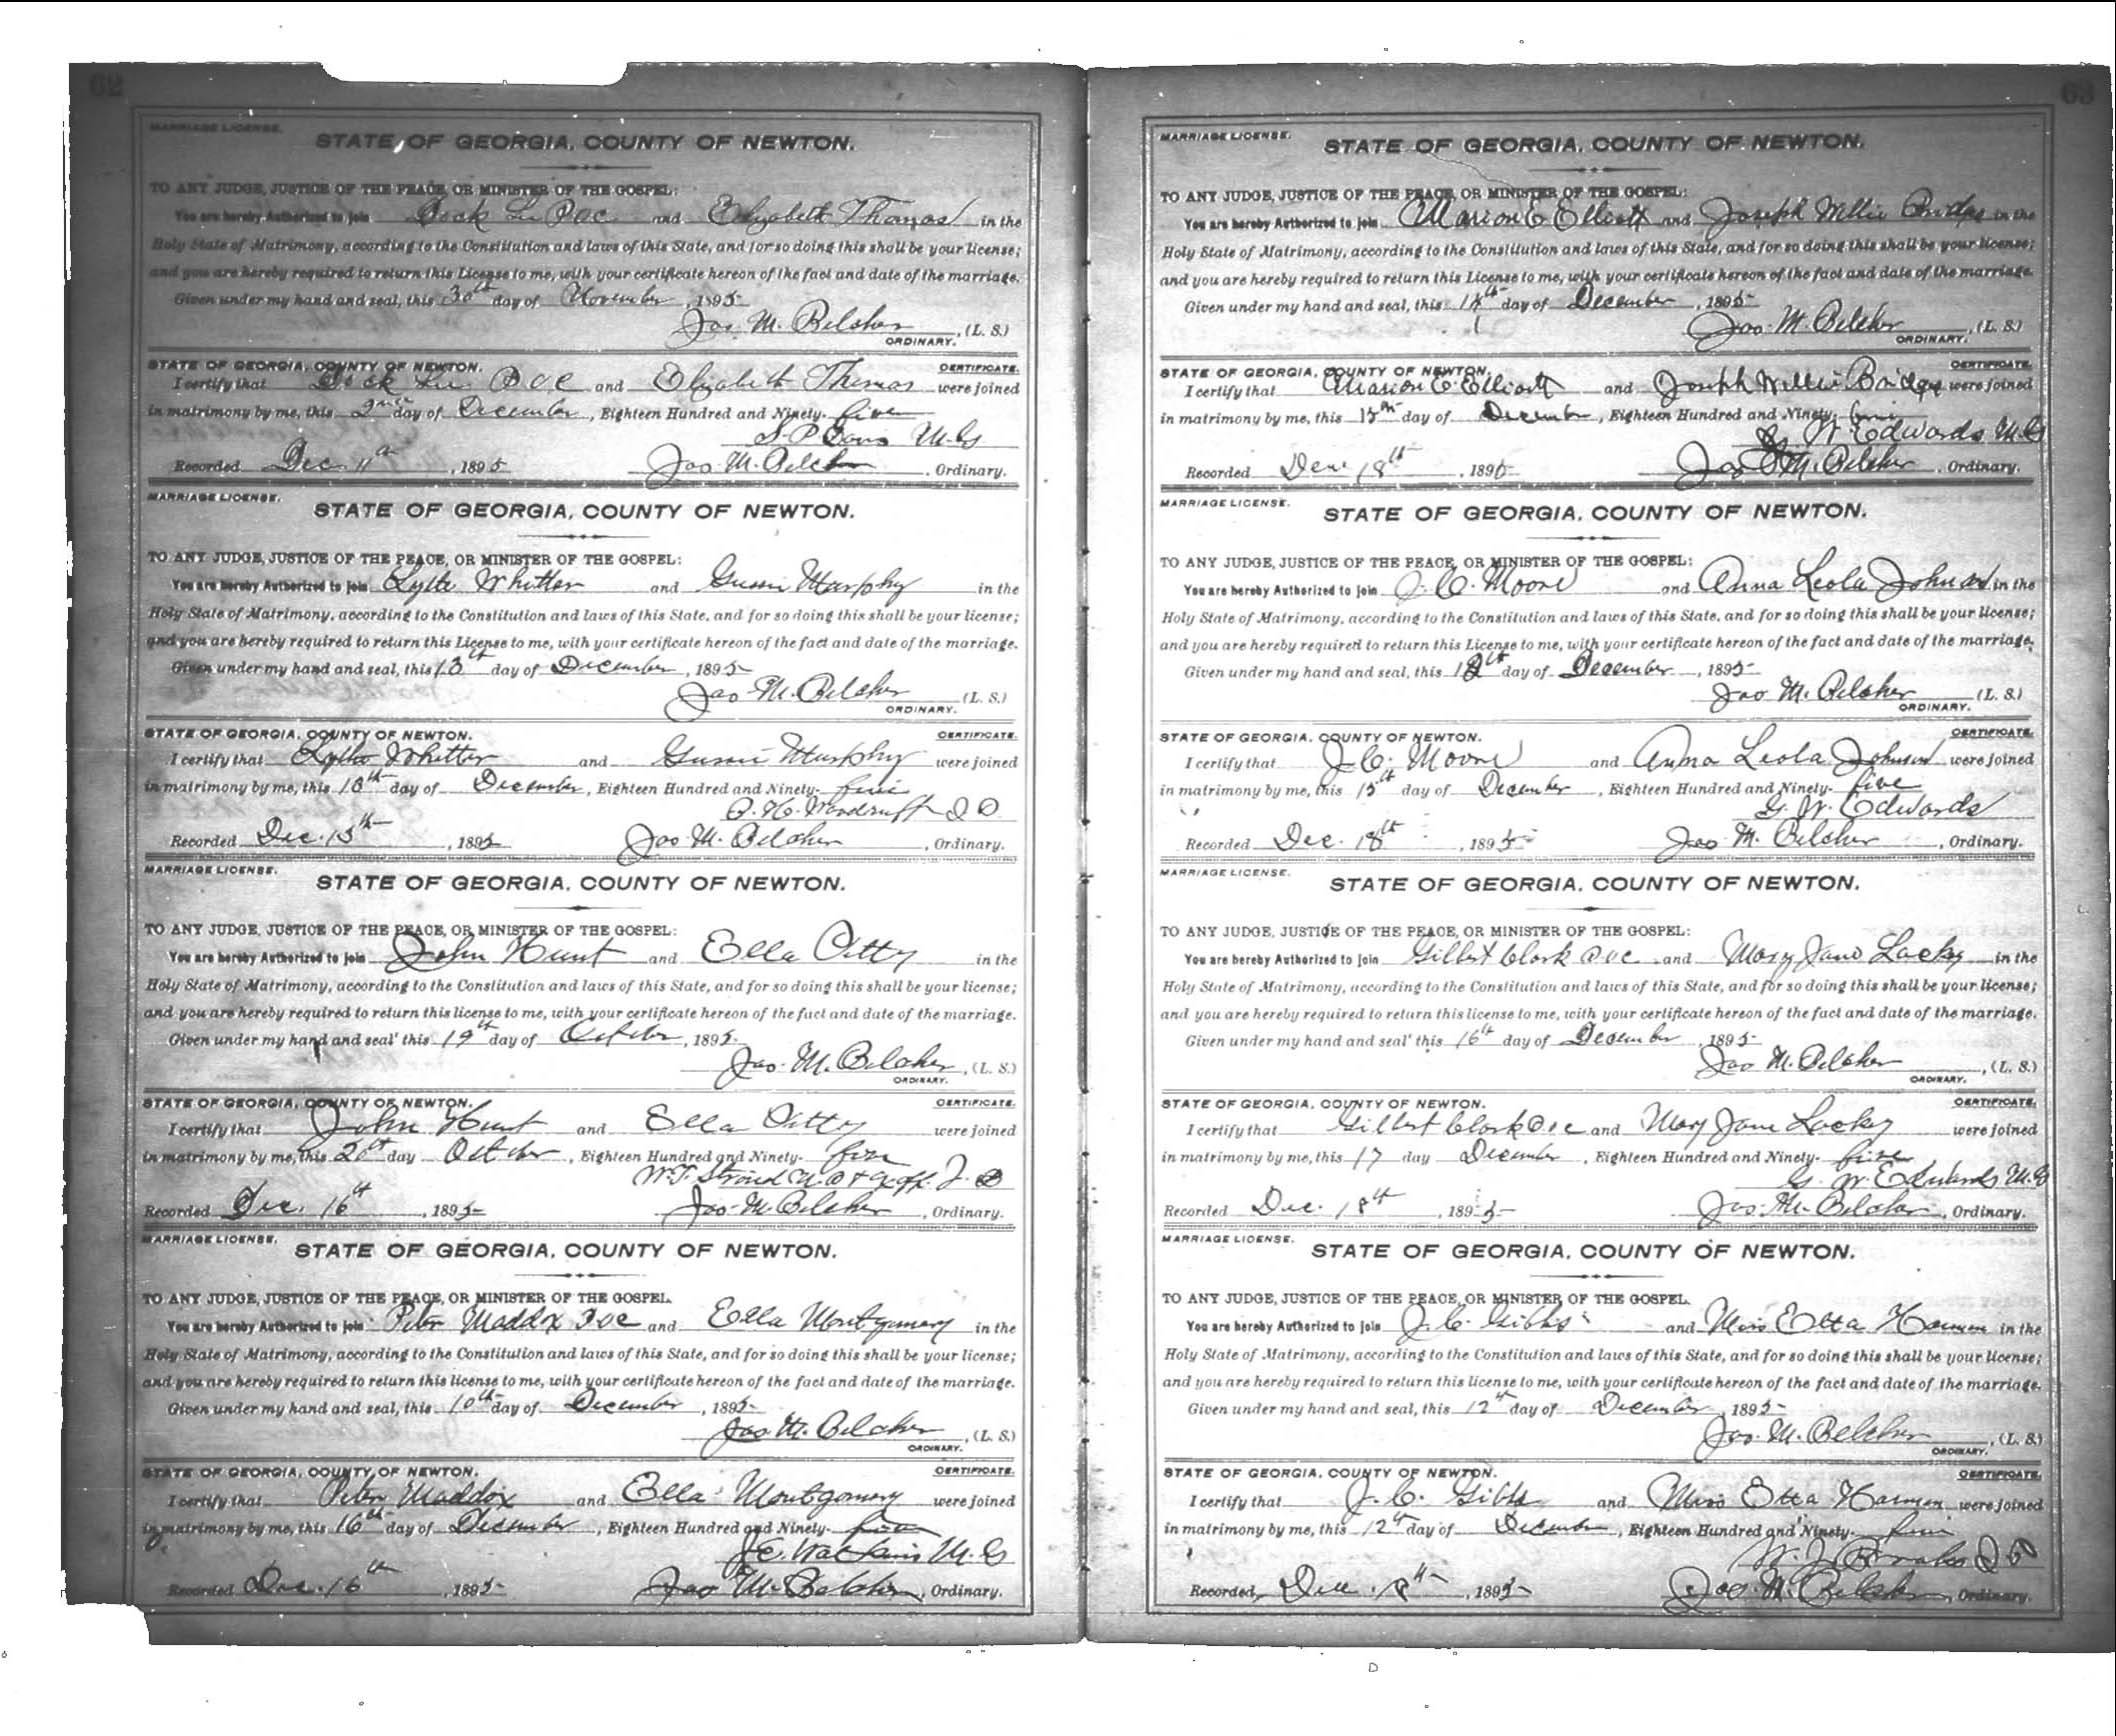 62
MARRIAGE LICENSE.
STATE OF GEORGIA, COUNTY OF NEWTON.
TO ANY JUDGE, JUSTICE OF THE PEACE, OR MINISTER OF THE GOSPEL:
You are hereby Authorized to join Dock Lee and Elizabeth Thomas in the
Holy State of Matrimony, according to the Constitution and laws of this State, and for so doing this shall be your license;
and you are hereby required to return this License to me, with your certificate hereon of the fact and date of the marriage.
Given under my hand and seal, this 30th day of November, 1895
Jas. M. Belcher, (L. S.)
ORDINARY.
STATE OF GEORGIA, COUNTY OF NEWTON. CERTIFICATE.
I certify that Dock Lee and Elizabeth Thomas were joined
in matrimony by me, this 2nd day of December, Eighteen Hundred and Ninety-five
S. P. M.G.
Recorded Dec 11th, 1895 Jas M. Belcher, Ordinary.
MARRIAGE LICENSE.
STATE OF GEORGIA, COUNTY OF NEWTON.
TO ANY JUDGE, JUSTICE OF THE PEACE, OR MINISTER OF THE GOSPEL:
You are hereby Authorized to join Whitten and Gussie Murphy in the
Holy State of Matrimony, according to the Constitution and laws of this State, and for so doing this shall be your license;
and you are hereby required to return this License to me, with your certificate hereon of the fact and date of the marriage.
Given under my hand and seal, this 13th day of December, 1895
Jas M. Belcher (L. S.)
ORDINARY.
STATE OF GEORGIA, COUNTY OF NEWTON. CERTIFICATE.
I certify that Whitten and Gussie Murphy were joined
in matrimony by me, this day of December, Eighteen Hundred and Ninety-five
Woodruff
Recorded Dec. 15th, 1895 Jas M. Belcher, Ordinary.
MARRIAGE LICENSE.
STATE OF GEORGIA, COUNTY OF NEWTON.
TO ANY JUDGE, JUSTICE OF THE PEACE, OR MINISTER OF THE GOSPEL:
You are hereby Authorized to join John Hunt and Ella Pitty in the
Holy State of Matrimony, according to the Constitution and laws of this State, and for so doing this shall be your license;
and you are hereby required to return this license to me, with your certificate hereon of the fact and date of the marriage.
Given under my hand and seal' this 19th day of October, 1895.
Jas. M. Belcher, (L. S.)
ORDINARY.
STATE OF GEORGIA, COUNTY OF NEWTON. CERTIFICATE.
I certify that John Hunt and Ella Pitty were joined
in matrimony by me, this 20th day October, Eighteen Hundred and Ninety-five
W. T. Stroud
Recorded Dec. 16th, 1895 Jas M. Belcher, Ordinary.
MARRIAGE LICENSE.
STATE OF GEORGIA, COUNTY OF NEWTON.
TO ANY JUDGE, JUSTICE OF THE PEACE, OR MINISTER OF THE GOSPEL.
You are hereby Authorized to join Peter Maddox and Ella Montgomery in the
Holy State of Matrimony, according to the Constitution and laws of this State, and for so doing this shall be your license;
and you are hereby required to return this license to me, with your certificate hereon of the fact and date of the marriage.
Given under my hand and seal, this 10th day of December, 1895
Jas M. Belcher, (L. S.)
ORDINARY.
STATE OF GEORGIA, COUNTY OF NEWTON. CERTIFICATE.
I certify that Peter Maddox and Ella Montgomery were joined
in matrimony by me, this 16th day of December, Eighteen Hundred and Ninety-five
J. C. Watkins M.G.
Recorded Dec. 16th, 1895 Jas M. Belcher, Ordinary.
63
MARRIAGE LICENSE.
STATE OF GEORGIA, COUNTY OF NEWTON.
TO ANY JUDGE, JUSTICE OF THE PEACE, OR MINISTER OF THE GOSPEL:
You are hereby Authorized to join Marion C Elliott and Joseph Willie Bridges in the
Holy State of Matrimony, according to the Constitution and laws of this State, and for so doing this shall be your license;
and you are hereby required to return this License to me, with your certificate hereon of the fact and date of the marriage.
Given under my hand and seal, this day of December, 1895
Jas. M. Belcher, (L. S.)
ORDINARY.
STATE OF GEORGIA, COUNTY OF NEWTON. CERTIFICATE.
I certify that Marion C Elliott and Joseph Willie Bridges were joined
in matrimony by me, this 15th day of December, Eighteen Hundred and Ninety-five
G. W. Edwards M.G.
Recorded Dec. 18th, 1895 Jas M. Belcher, Ordinary.
MARRIAGE LICENSE.
STATE OF GEORGIA, COUNTY OF NEWTON.
TO ANY JUDGE, JUSTICE OF THE PEACE, OR MINISTER OF THE GOSPEL:
You are hereby Authorized to join J. C. Moore and Anna Leola Johnson in the
Holy State of Matrimony, according to the Constitution and laws of this State, and for so doing this shall be your license;
and you are hereby required to return this License to me, with your certificate hereon of the fact and date of the marriage.
Given under my hand and seal, this day of December, 1895
Jas M. Belcher (L. S.)
ORDINARY.
STATE OF GEORGIA, COUNTY OF NEWTON. CERTIFICATE.
I certify that J. C. Moore and Anna Leola Johnson were joined
in matrimony by me, this 15th day of December, Eighteen Hundred and Ninety-five
G. W. Edwards
Recorded Dec. 18th, 1895 Jas M. Belcher, Ordinary.
MARRIAGE LICENSE.
STATE OF GEORGIA, COUNTY OF NEWTON.
TO ANY JUDGE, JUSTICE OF THE PEACE, OR MINISTER OF THE GOSPEL:
You are hereby Authorized to join Gilbert Clark and Mary Jane Lacky in the
Holy State of Matrimony, according to the Constitution and laws of this State, and for so doing this shall be your license;
and you are hereby required to return this license to me, with your certificate hereon of the fact and date of the marriage.
Given under my hand and seal' this 16th day of December, 1895
Jas M. Belcher, (L. S.)
ORDINARY.
STATE OF GEORGIA, COUNTY OF NEWTON. CERTIFICATE.
I certify that Gilbert Clark and Mary Jane Lacky were joined
in matrimony by me, this 17 day December, Eighteen Hundred and Ninety-five
G. W. Edwards M.G.
Recorded Dec. 18th, 1895 Jas. M. Belcher, Ordinary.
MARRIAGE LICENSE.
STATE OF GEORGIA, COUNTY OF NEWTON.
TO ANY JUDGE, JUSTICE OF THE PEACE, OR MINISTER OF THE GOSPEL.
You are hereby Authorized to join J. C. Gibbs and Miss Etta Harmon in the
Holy State of Matrimony, according to the Constitution and laws of this State, and for so doing this shall be your license;
and you are hereby required to return this license to me, with your certificate hereon of the fact and date of the marriage.
Given under my hand and seal, this 12th day of December, 1895
Jas. M. Belcher, (L. S.)
ORDINARY.
STATE OF GEORGIA, COUNTY OF NEWTON. CERTIFICATE.
I certify that J. C. Gibbs and Miss Etta Harmon were joined
in matrimony by me, this 12th day of December, Eighteen Hundred and Ninety-five
W. J.
Recorded, Dec. 18th, 1895 Jas. M. Belcher, Ordinary.